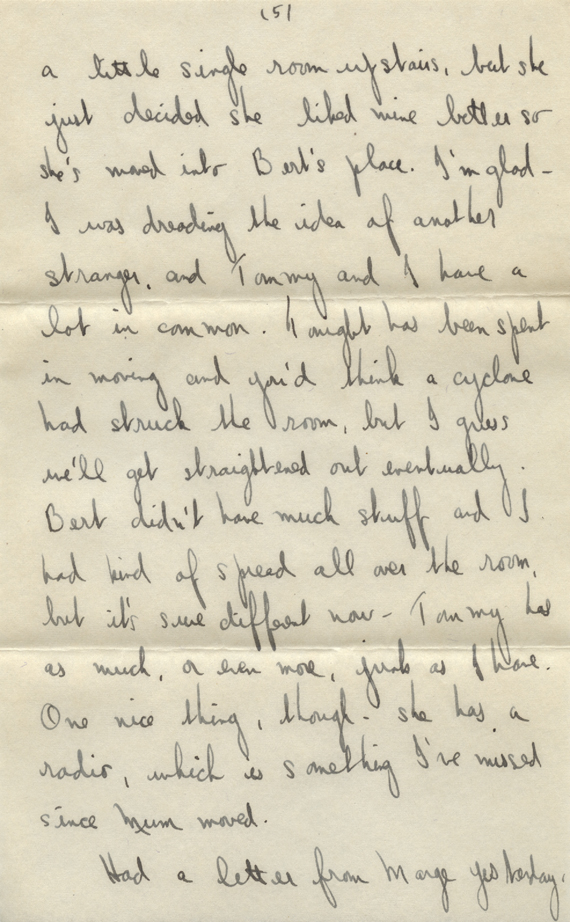 (5)
a little single room upstairs, but she
just decided she liked mine better so
she's moved into Bert's place. I'm glad -
I was dreading the idea of another
stranger, and Tommy and I have a
lot in common. Tonight has been spent
in moving and you'd think a cyclone
had struck the room, but I guess
we'll get straightened out eventually.
Bert didn't have much stuff and I
had kind of spread all over the room,
but it's sure different now - Tommy has
as much, or even more, junk as I have.
One nice thing, though - she has a
radio, which is something I've missed
since Mum moved.
Had a letter from Marge yesterday.